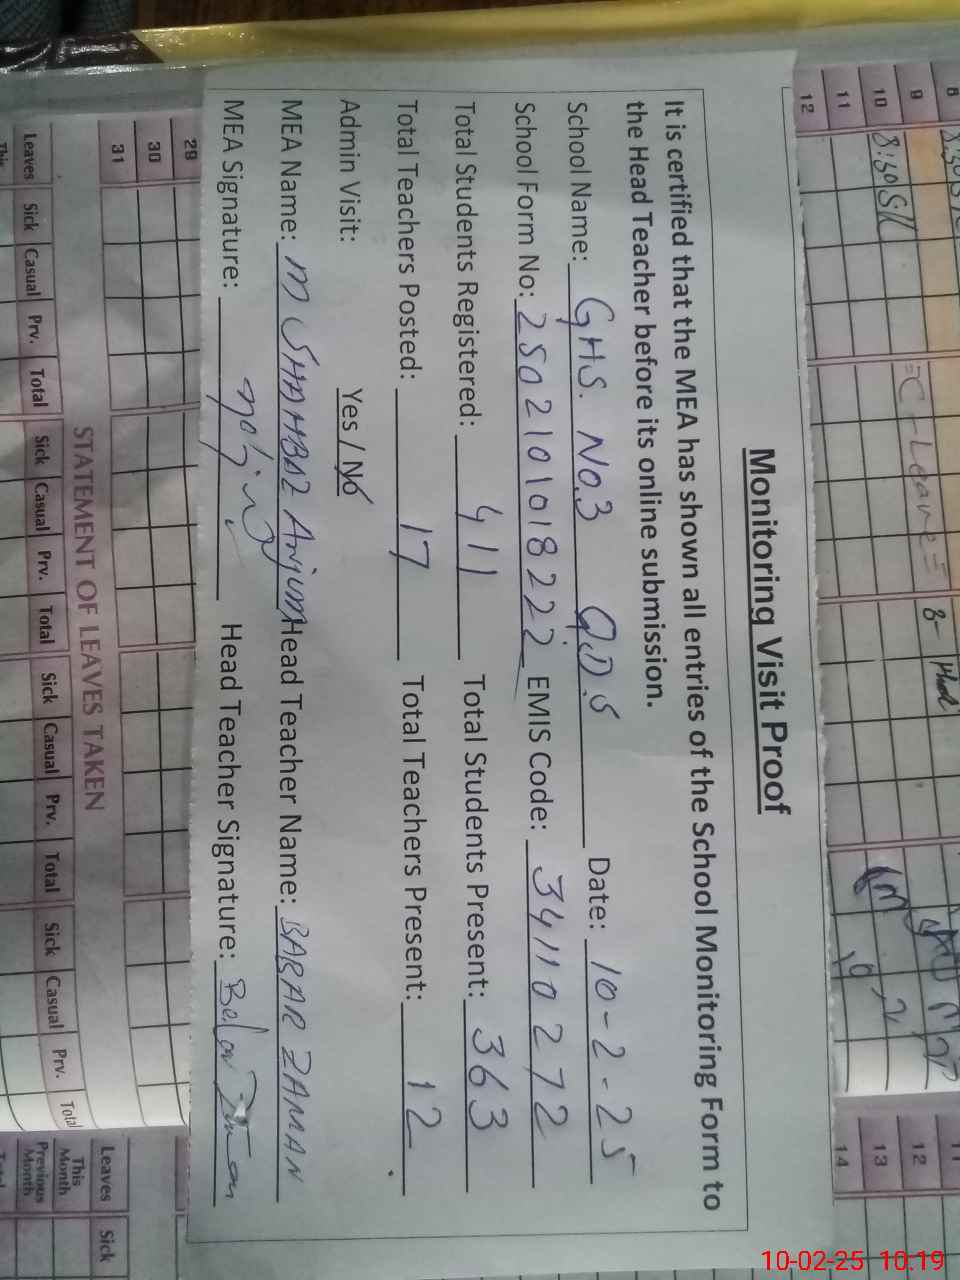 Monitoring Visit Proof
It is certified that the MEA has shown all entries of the School Monitoring Form to
the Head Teacher before its online submission.
School Name: GHS. No.3 Q.D.S Date: 10-2-25
School Form No: 2502101018222 EMIS Code: 34110272
Total Students Registered: 411 Total Students Present: 363
Total Teachers Posted: 17 Total Teachers Present: 12
Admin Visit: Yes / No
MEA Name: M SHAHBAZ Anjum Head Teacher Name: BABAR ZAMAN
MEA Signature: Head Teacher Signature:
8
9
10 8:30
11
12
C-Leave
11
12
13
14
29
30
31
STATEMENT OF LEAVES TAKEN
Leaves Sick Casual Prv. Total Sick Casual Prv. Total Sick Casual Prv. Total Sick Casual Prv. Total
This
Leaves Sick
This Month
Previous Month
Total
10-02-25 10:19